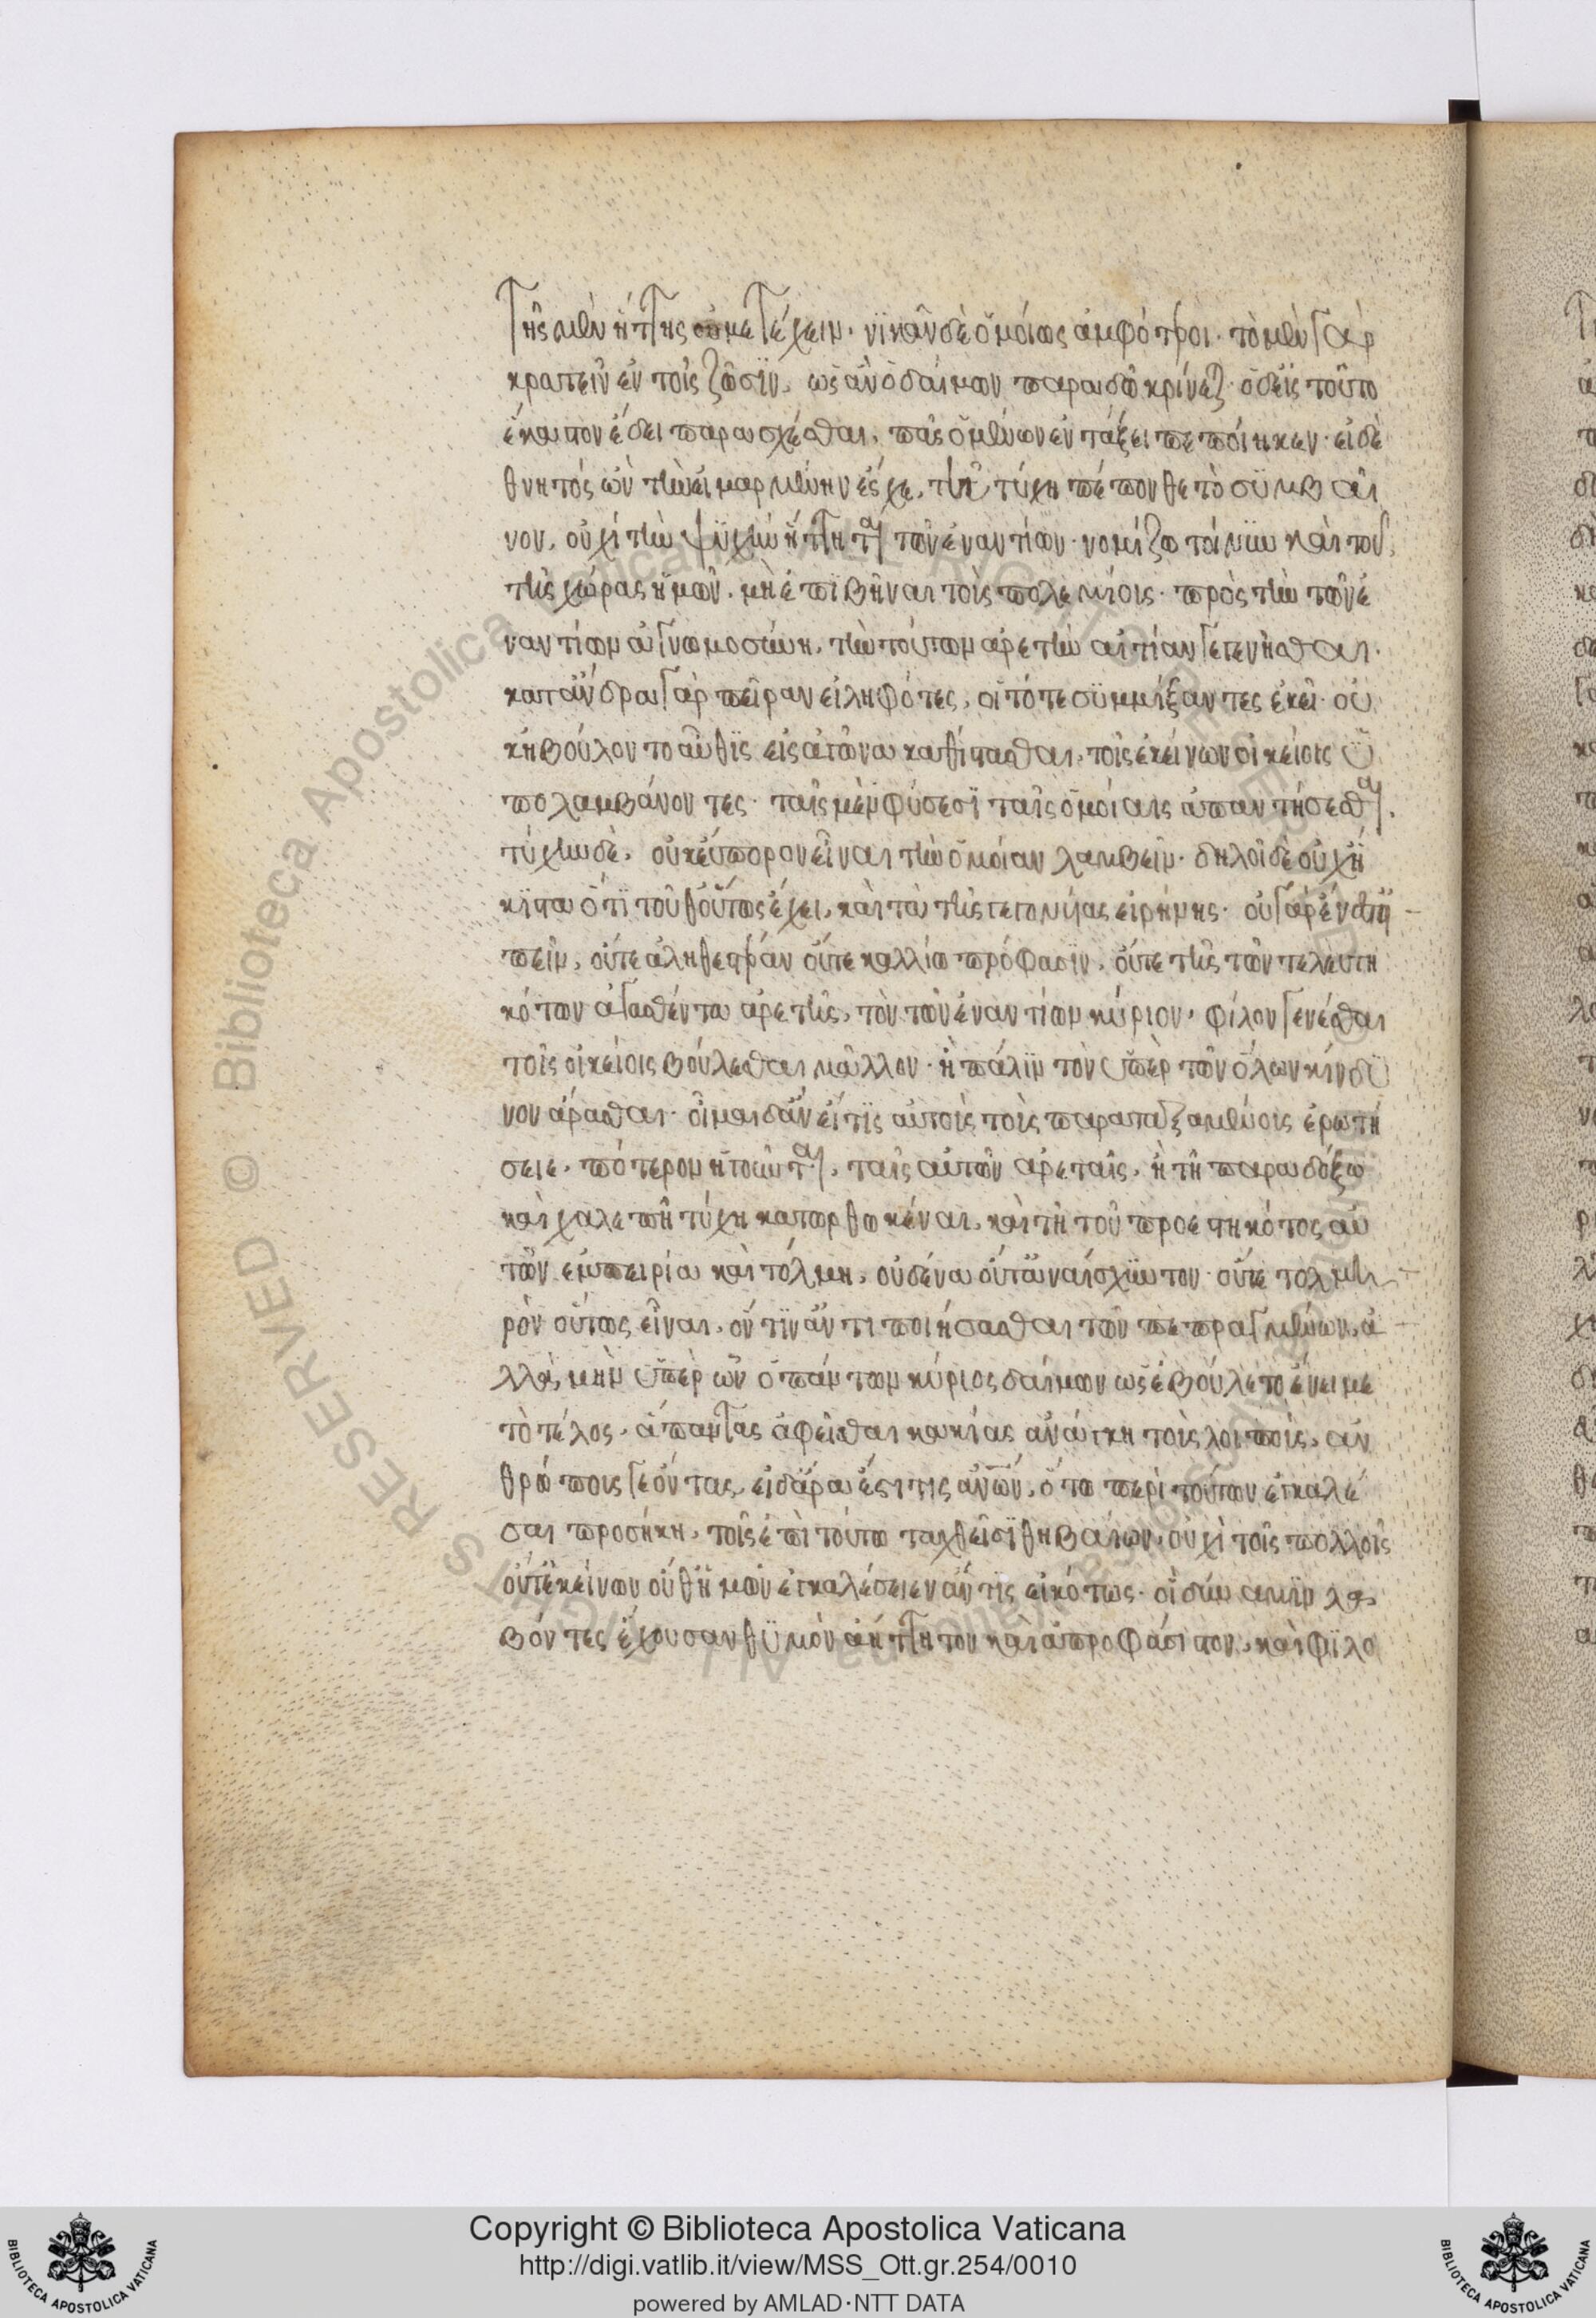 τῆς μὲν ἥττης οὐ μετέχειν. νϊκᾶν δὲ ὁμοίως ἀμφότεροι. τὸ μὲν γὰρ
κρατεῖν ἐν τοῖς ζῶσϊν, ὡς ἂν ὁ δαίμων παραδῷ κρίνεται. ὃ δ' εἰς τοῦτο
ἕκαστον ἔδει παρασχέσθαι, πᾶς ὁ μένων ἐν τάξει πεποίηκεν. εἰ δὲ
θνητὸς ὢν τὴν εἱμαρμένην ἔσχε, τῇ τύχῃ πέπονθε τὸ συμβαῖ
νον, οὐχὶ τὴν ψυχὴν ἥττηται τῶν ἐναντίων. νομίζω τοίνυν καὶ τοῦ
τῆς χώρας ἡμῶν. μὴ ἐπϊβῆναι τοὺς πολεμίους. πρὸς τὴν τῶν ἐ
ναντίων ἀγνωμοσύνη, τὴν τούτων ἀρετὴν αἰτίαν γεγενῆσθαι.
κατ' ἄνδρα γὰρ πεῖραν εἰληφότες, οἱ τότε συμμίξαντες ἐκεῖ. οὐ
κ ἠβούλοντο αὖθϊς εἰς ἀγῶνα καθίστασθαι, τοῖς ἐκείνων οἰκείοις ὑ
πολαμβάνοντες. ταῖς μὲν φύσεσϊ ταῖς ὁμοίαις ἀπαντήσεσθαι.
τύχην δὲ, οὐκ εὔπορον εἶναι τὴν ὁμοίαν λαβεῖν. δηλοῖ δὲ οὐχ ἥ
κϊστα ὅτϊ τοῦθ' οὕτως ἔχει, καὶ τὰ τῆς γεγονυίας εἰρήνης. οὐ γὰρ ἔνεστϊ
πεῖν, οὔτε ἀληθεστέραν οὔτε καλλίω πρόφασϊν, οὔτε τῆς τῶν τελευτη
κότων ἀγασθέντα ἀρετῆς, τὸν τῶν ἐναντίων κύριον, φίλον γενέσθαι
τοῖς οἰκείοις βούλεσθαι μᾶλλον. ἢ πάλϊν τὸν ὑπὲρ τῶν ὅλων κίνδυ
νον ἄρασθαι. οἶμαι δ' ἂν εἴ τϊς αὐτοὺς τοὺς παραταξαμένους ἐρωτή
σειε, πότερον ἡγοῦνται, ταῖς αὑτῶν ἀρεταῖς, ἢ τῇ παραδόξῳ
καὶ χαλεπῇ τύχῃ κατωρθωκέναι, καὶ τῇ τοῦ προεστηκότος αὐ
τῶν ἐμπειρίᾳ καὶ τόλμῃ, οὐδένα οὔτ' ἀναίσχυντον οὔτε τολμη
ρὸν οὕτως εἶναι, ὅν τϊν' ἀντιποιήσασθαι τῶν πεπραγμένων, ἀ
λλὰ μὴν ὑπὲρ ὧν ὁ πάντων κύριος δαίμων ὡς ἐβούλετο ἔνειμε
τὸ τέλος, ἅπαντας ἀφεῖσθαι κακίας ἀνάγκη τοὺς λοιποὺς, ἀν
θρώπους γε ὄντας, εἰ δ' ἄρα ἔστι τις ἀνων, ὅτῳ περὶ τούτων ἐγκαλέ
σαι προσήκη, τοῖς ἐπὶ τούτῳ ταχθεῖσϊ θηβαίων, οὐχὶ τοῖς πολλοῖς
οὔτ' ἐκείνων οὔθ' ἡμῶν ἐγκαλέσειεν ἄν τις εἰκότως. οἳ δύναμϊν λα
βόντες ἔχουσαν θυμὸν ἀήττητον καὶ ἀπροφάσιστον, καὶ φϊλο
Copyright © Biblioteca Apostolica Vaticana
http://digi.vatlib.it/view/MSS_Ott.gr.254/0010
powered by AMLAD·NTT DATA